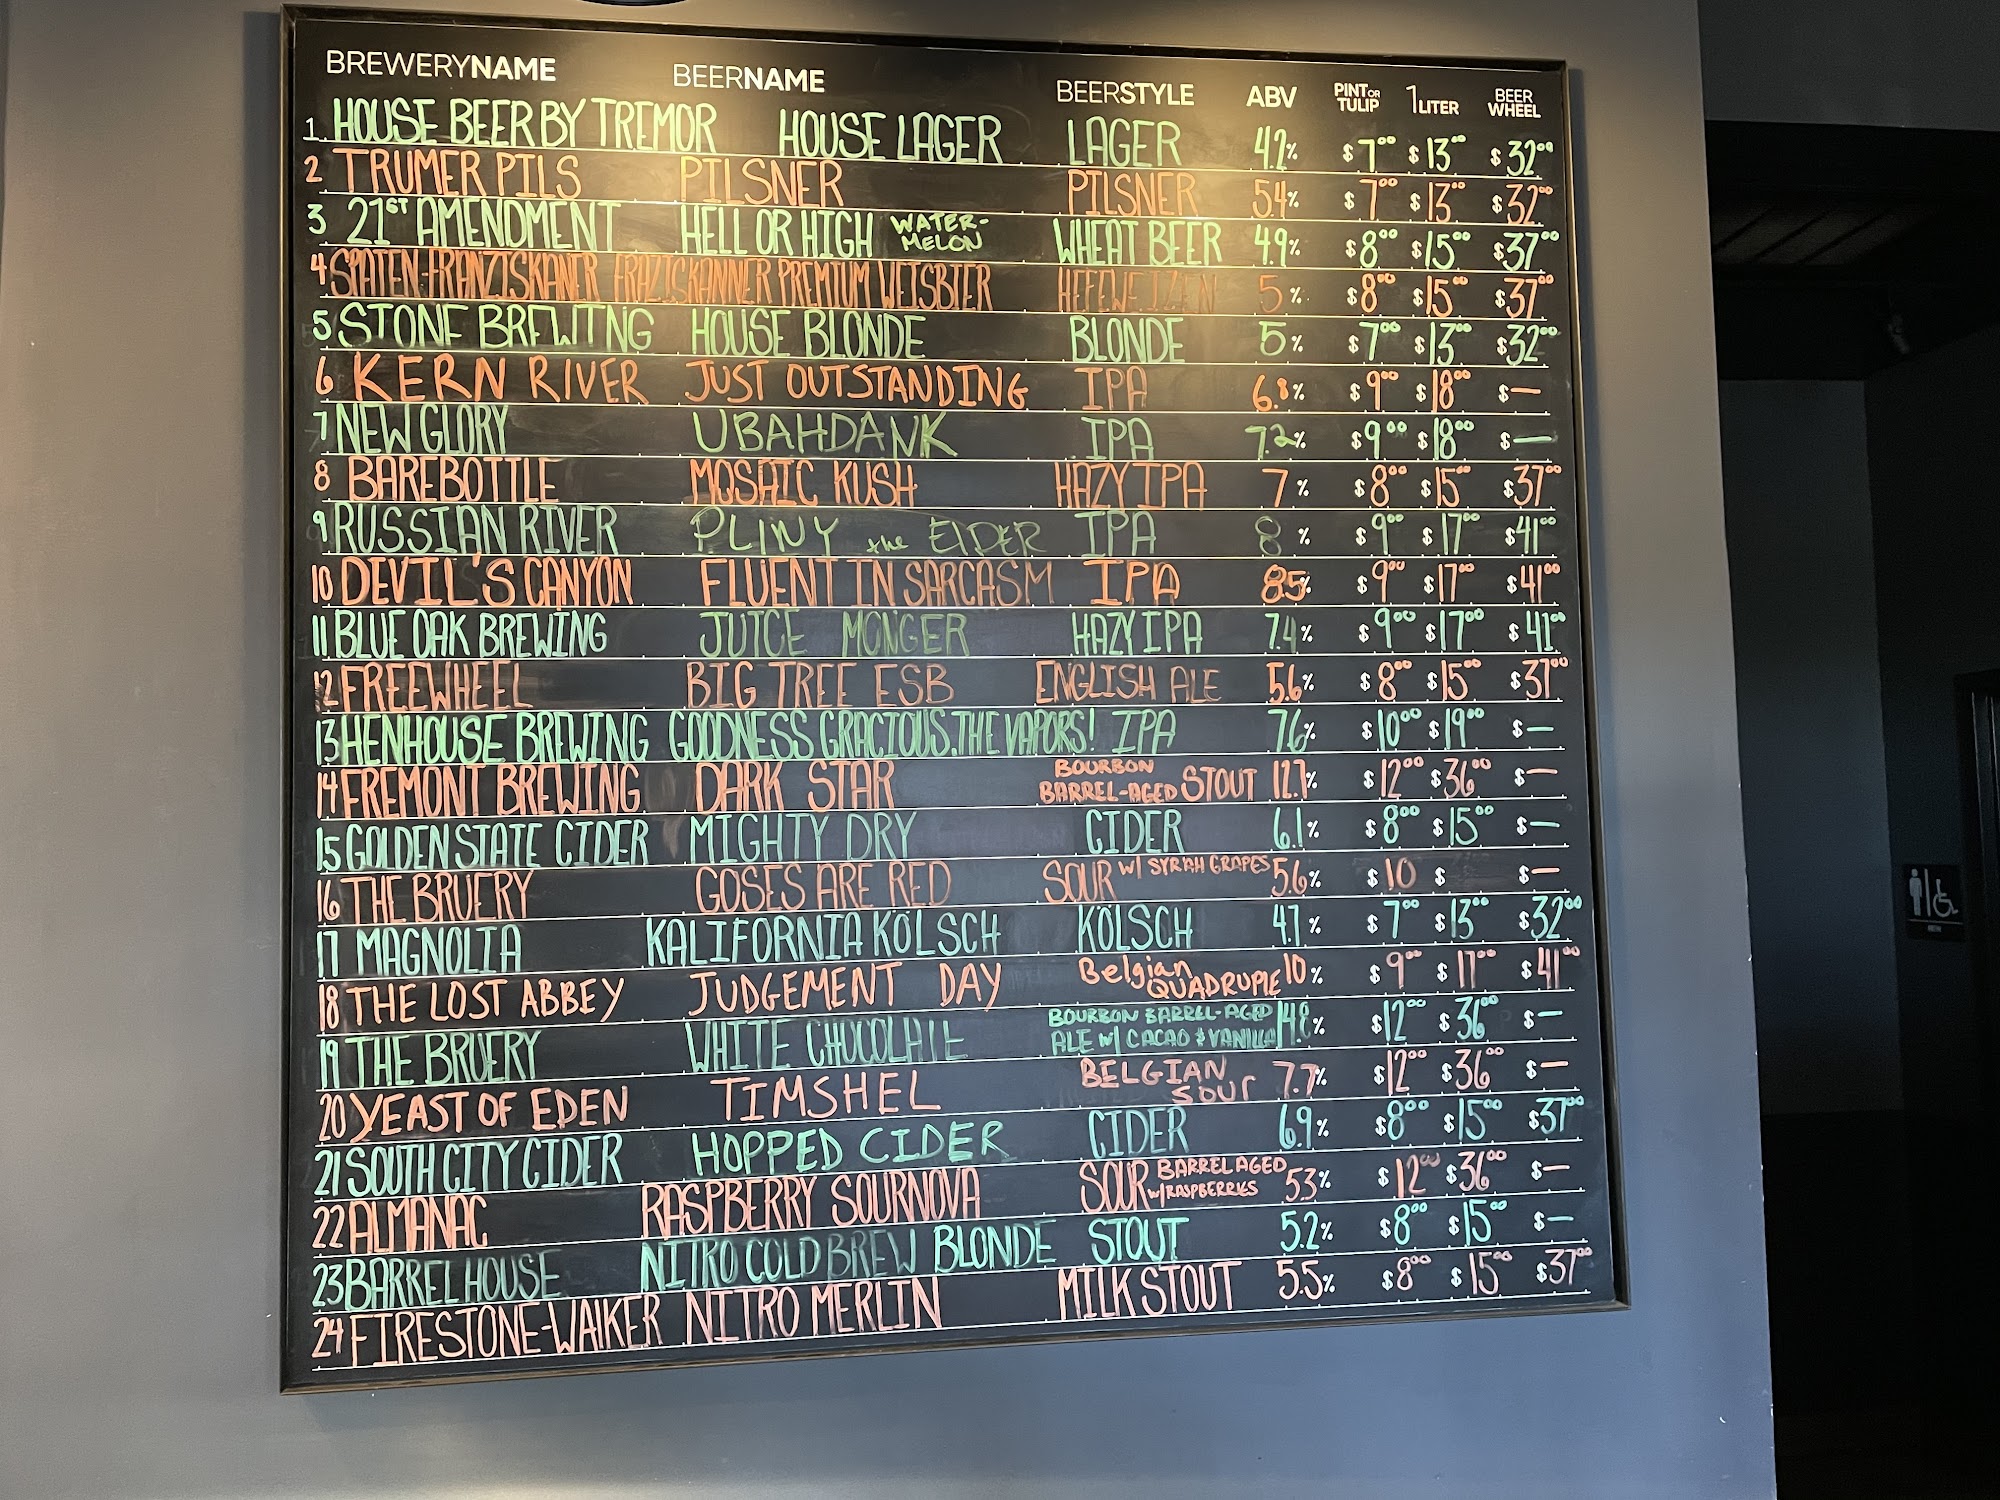 BREWERYNAME BEERNAME BEERSTYLE ABV PINT OR TULIP 1 LITER BEER WHEEL
1. HOUSE BEER BY TREMOR HOUSE LAGER LAGER 4.2% $7.00 $13.00 $32.00
2 TRUMER PILS PILSNER PILSNER 5.4% $7.00 $13.00 $32.00
3 21ST AMENDMENT HELL OR HIGH WATER-MELON WHEAT BEER 4.9% $8.00 $15.00 $37.00
4 SPATEN-FRANZISKANER FRAZISKANNER PREMIUM WEISBIER HEFEWEIZEN 5% $8.00 $15.00 $37.00
5 STONE BREWING HOUSE BLONDE BLONDE 5% $7.00 $13.00 $32.00
6 KERN RIVER JUST OUTSTANDING IPA 6.8% $9.00 $18.00 $—
7 NEW GLORY UBAHDANK IPA 7.2% $9.00 $18.00 $—
8 BAREBOTTLE MOSAIC KUSH HAZY IPA 7% $8.00 $15.00 $37.00
9 RUSSIAN RIVER PLINY the ElDER IPA 8% $9.00 $17.00 $41.00
10 DEVIL'S CANYON FLUENT IN SARCASM IPA 8.5% $9.00 $17.00 $41.00
11 BLUE OAK BREWING JUICE MONGER HAZY IPA 7.4% $9.00 $17.00 $41.00
12 FREEWHEEL BIG TREE ESB ENGLISH ALE 5.6% $8.00 $15.00 $37.00
13 HENHOUSE BREWING GOODNESS GRACIOUS, THE VAPORS! IPA 7.6% $10.00 $19.00 $—
14 FREMONT BREWING DARK STAR BOURBON BARREL-AGED STOUT 12.7% $12.00 $36.00 $—
15 GOLDEN STATE CIDER MIGHTY DRY CIDER 6.1% $8.00 $15.00 $—
16 THE BRUERY GOSES ARE RED SOUR w/ SYRAH GRAPES 5.6% $10 $ $—
17 MAGNOLIA KALIFORNIA KÖLSCH KÖLSCH 4.7% $7.00 $13.00 $32.00
18 THE LOST ABBEY JUDGEMENT DAY Belgian QUADRUPlE 10% $9.00 $17.00 $41.00
19 THE BRUERY WHITE CHOCOLATE BOURBON BARREL-AGED ALE w/ CACAO & VANILLA 14.8% $12.00 $36.00 $—
20 YEAST OF EDEN TIMSHEL BELGIAN SOUr 7.7% $12.00 $36.00 $—
21 SOUTH CITY CIDER HOPPED CIDER CIDER 6.9% $8.00 $15.00 $37.00
22 ALMANAC RASPBERRY SOURNOVA SOUR BARREL AGED w/RASPBERRIES 5.3% $12.00 $36.00 $—
23 BARRELHOUSE NITRO COLD BREW BLONDE STOUT 5.2% $8.00 $15.00 $—
24 FIRESTONE-WALKER NITRO MERLIN MILK STOUT 5.5% $8.00 $15.00 $37.00